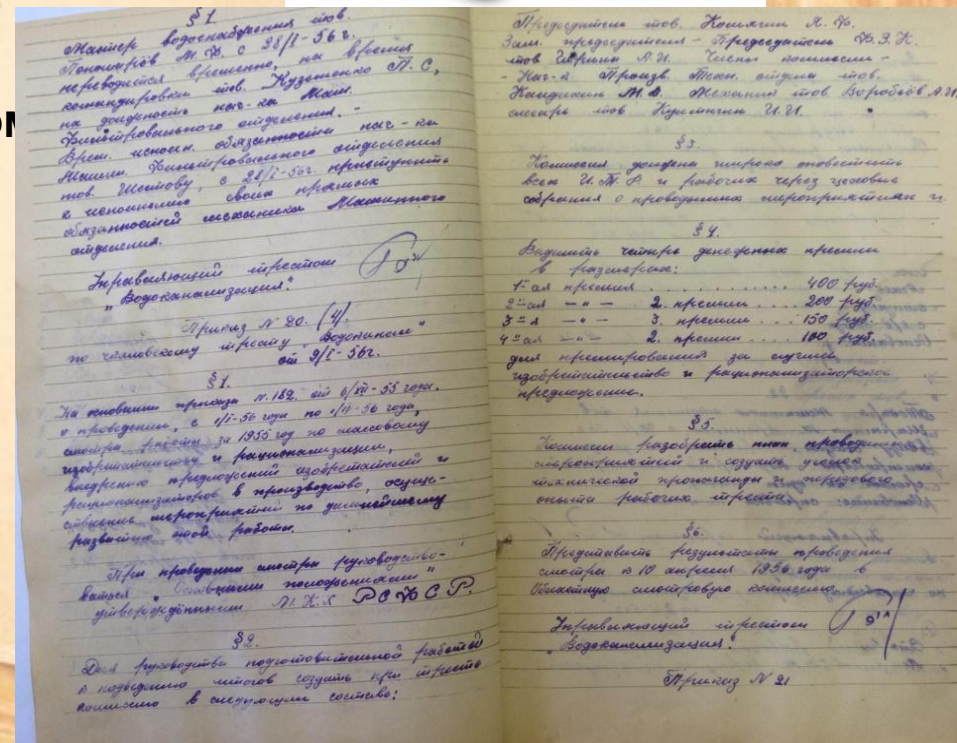 ом
§ 1
Мастер водоснабжения тов.
Пономарёв М.Ф. с 28/I-56 г.
переводится временно, на время
командировки тов. Кузьменко П.С,
на должность нач-ка Маш.
Фильтровального отделения. -
Врем. исполн. обязанности нач-ка
Машин. Фильтровального отделения
тов. Шестову, с 28/I-56г. приступить
к исполнению своих прямых
обязанностей механика Машинного
отделения.
Управляющий трестом
"Водоканализация".
Приказ N 20. (4).
по тресту "Водоканал"
от 9/I-56г.
§ 1.
На основании приказа N. 182. от 6/XII-55 года.
о проведении, с 1/I-56 года по 1/IV-56 года,
смотра работы за 1955 год по массовому
изобретательству и рационализации,
внедрению предложений изобретателей и
рационализаторов в производство, осущес-
ствление мероприятий по дальнейшему
развитию этой работы.
При проведении смотра руководство-
ваться "Основными положениями"
утверждёнными М.К.Х РСФСР.
§ 2.
Для руководства подготовительной работой
к подведению итогов создать при тресте
комиссию в следующем составе:
Председатель тов. Кошкин А.Ф.
Зам. председателя - Председатель Ф.З.К.
тов А.И. Члены комиссии -
- Нач-к Произв. Техн. отдела тов.
М.Д. Механик тов Воробьёв А.И.
слесарь тов И.И.
§ 3.
Комиссия должна широко оповестить
всех И.Т.Р. и рабочих через цеховые
собрания о проводимых мероприятиях и.
§ 4.
Выделить четыре денежных премии
в размерах:
1-ая премия . . . . . . . . . . . 400 руб.
2-ая —"— 2. премии . . . 200 руб.
3-я —"— 3. премии . . . 150 руб.
4-ая —"— 2. премии . . . 100 руб.
для премирования за лучшее
изобретательство и рационализаторское
предложение.
§ 5.
Комиссии разобрать план проведения
мероприятий и создать уголок
технической пропаганды и передового
опыта рабочих треста.
§ 6.
Представить результаты проведения
смотра к 10 апреля 1956 года в
Областную смотровую комиссию.
Управляющий трестом
"Водоканализация".
Приказ N 21